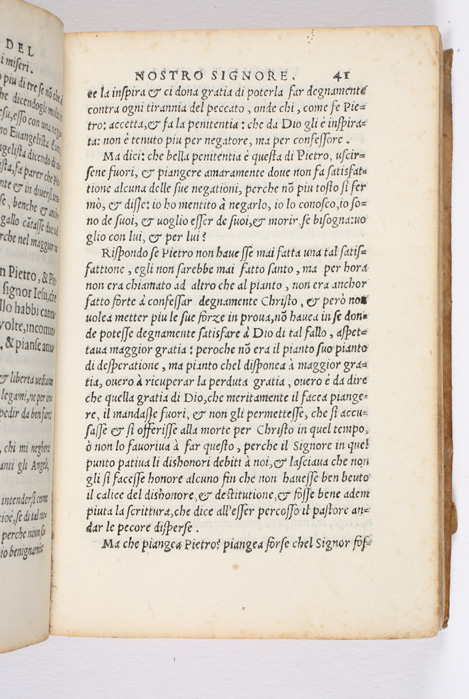 DEL
i miseri.
o piu di tre se nõ che
he dicendogli
esu, esso con una
no Euangelista. E
gelista dicendo di
sta, fa parer che
nte & in diuersi
se, benche & anch
gallo cãtasse due
rche nel maggior
n Pietro, & Pie
signor Iesu, che
llo habbi cant
volte, incomin
& pianse amar
& liberta
legami, ne per
pedir da ben far
chi mi neghere
anti gli Angeli
intendersi come
cioè, se di tal
perche niun
io benignamente
NOSTRO SIGNORE. 41
ce la inspira & ci dona gratia di poterla far degnamente
contra ogni tirannia del peccato, onde chi, come fe Pie=
tro: accetta, & fa la penitentia: che da Dio gli è inspira=
ta: non è tenuto piu per negatore, ma per confessore.
Ma dici: che bella penitentia è questa di Pietro, uscir=
sene fuori, & piangere amaramente doue non fa satisfat=
tione alcuna delle sue negationi, perche nõ piu tosto si fer
mò, & disse: io ho mentito à negarlo, io lo conosco, io so=
no de suoi, & uoglio esser de suoi, & morir, se bisogna: uo
glio con lui, & per lui?
Rispondo se Pietro non hauesse mai fatta una tal satis=
fattione, egli non sarebbe mai fatto santo, ma per hora
non era chiamato ad altro che al pianto, non era anchor
fatto forte à confessar degnamente Christo, & però non
uolea metter piu le sue forze in proua, nõ hauea in se don=
de potesse degnamente satisfare à Dio di tal fallo, aspet=
taua maggior gratia: peroche nõ era il pianto suo pianto
di desperatione, ma pianto chel disponea à maggior gra=
tia, ouero à ricuperar la perduta gratia, ouero è da dire
che quella gratia di Dio, che meritamente il facea piange=
re, il mandasse fuori, & non gli permettesse, che si accu=
sasse & si offerisse alla morte per Christo in quel tempo,
ò non lo fauoriua à far questo, perche il Signore in quel
punto patiua li dishonori debiti à noi, & lasciaua che non
gli si facesse honore alcuno fin che non hauesse ben beuto
il calice del dishonore, & destitutione, & fosse bene adem
piuta la scrittura, che dice all'esser percosso il pastore an=
dar le pecore disperse.
Ma che piangea Pietro? piangea forse chel Signor fos=